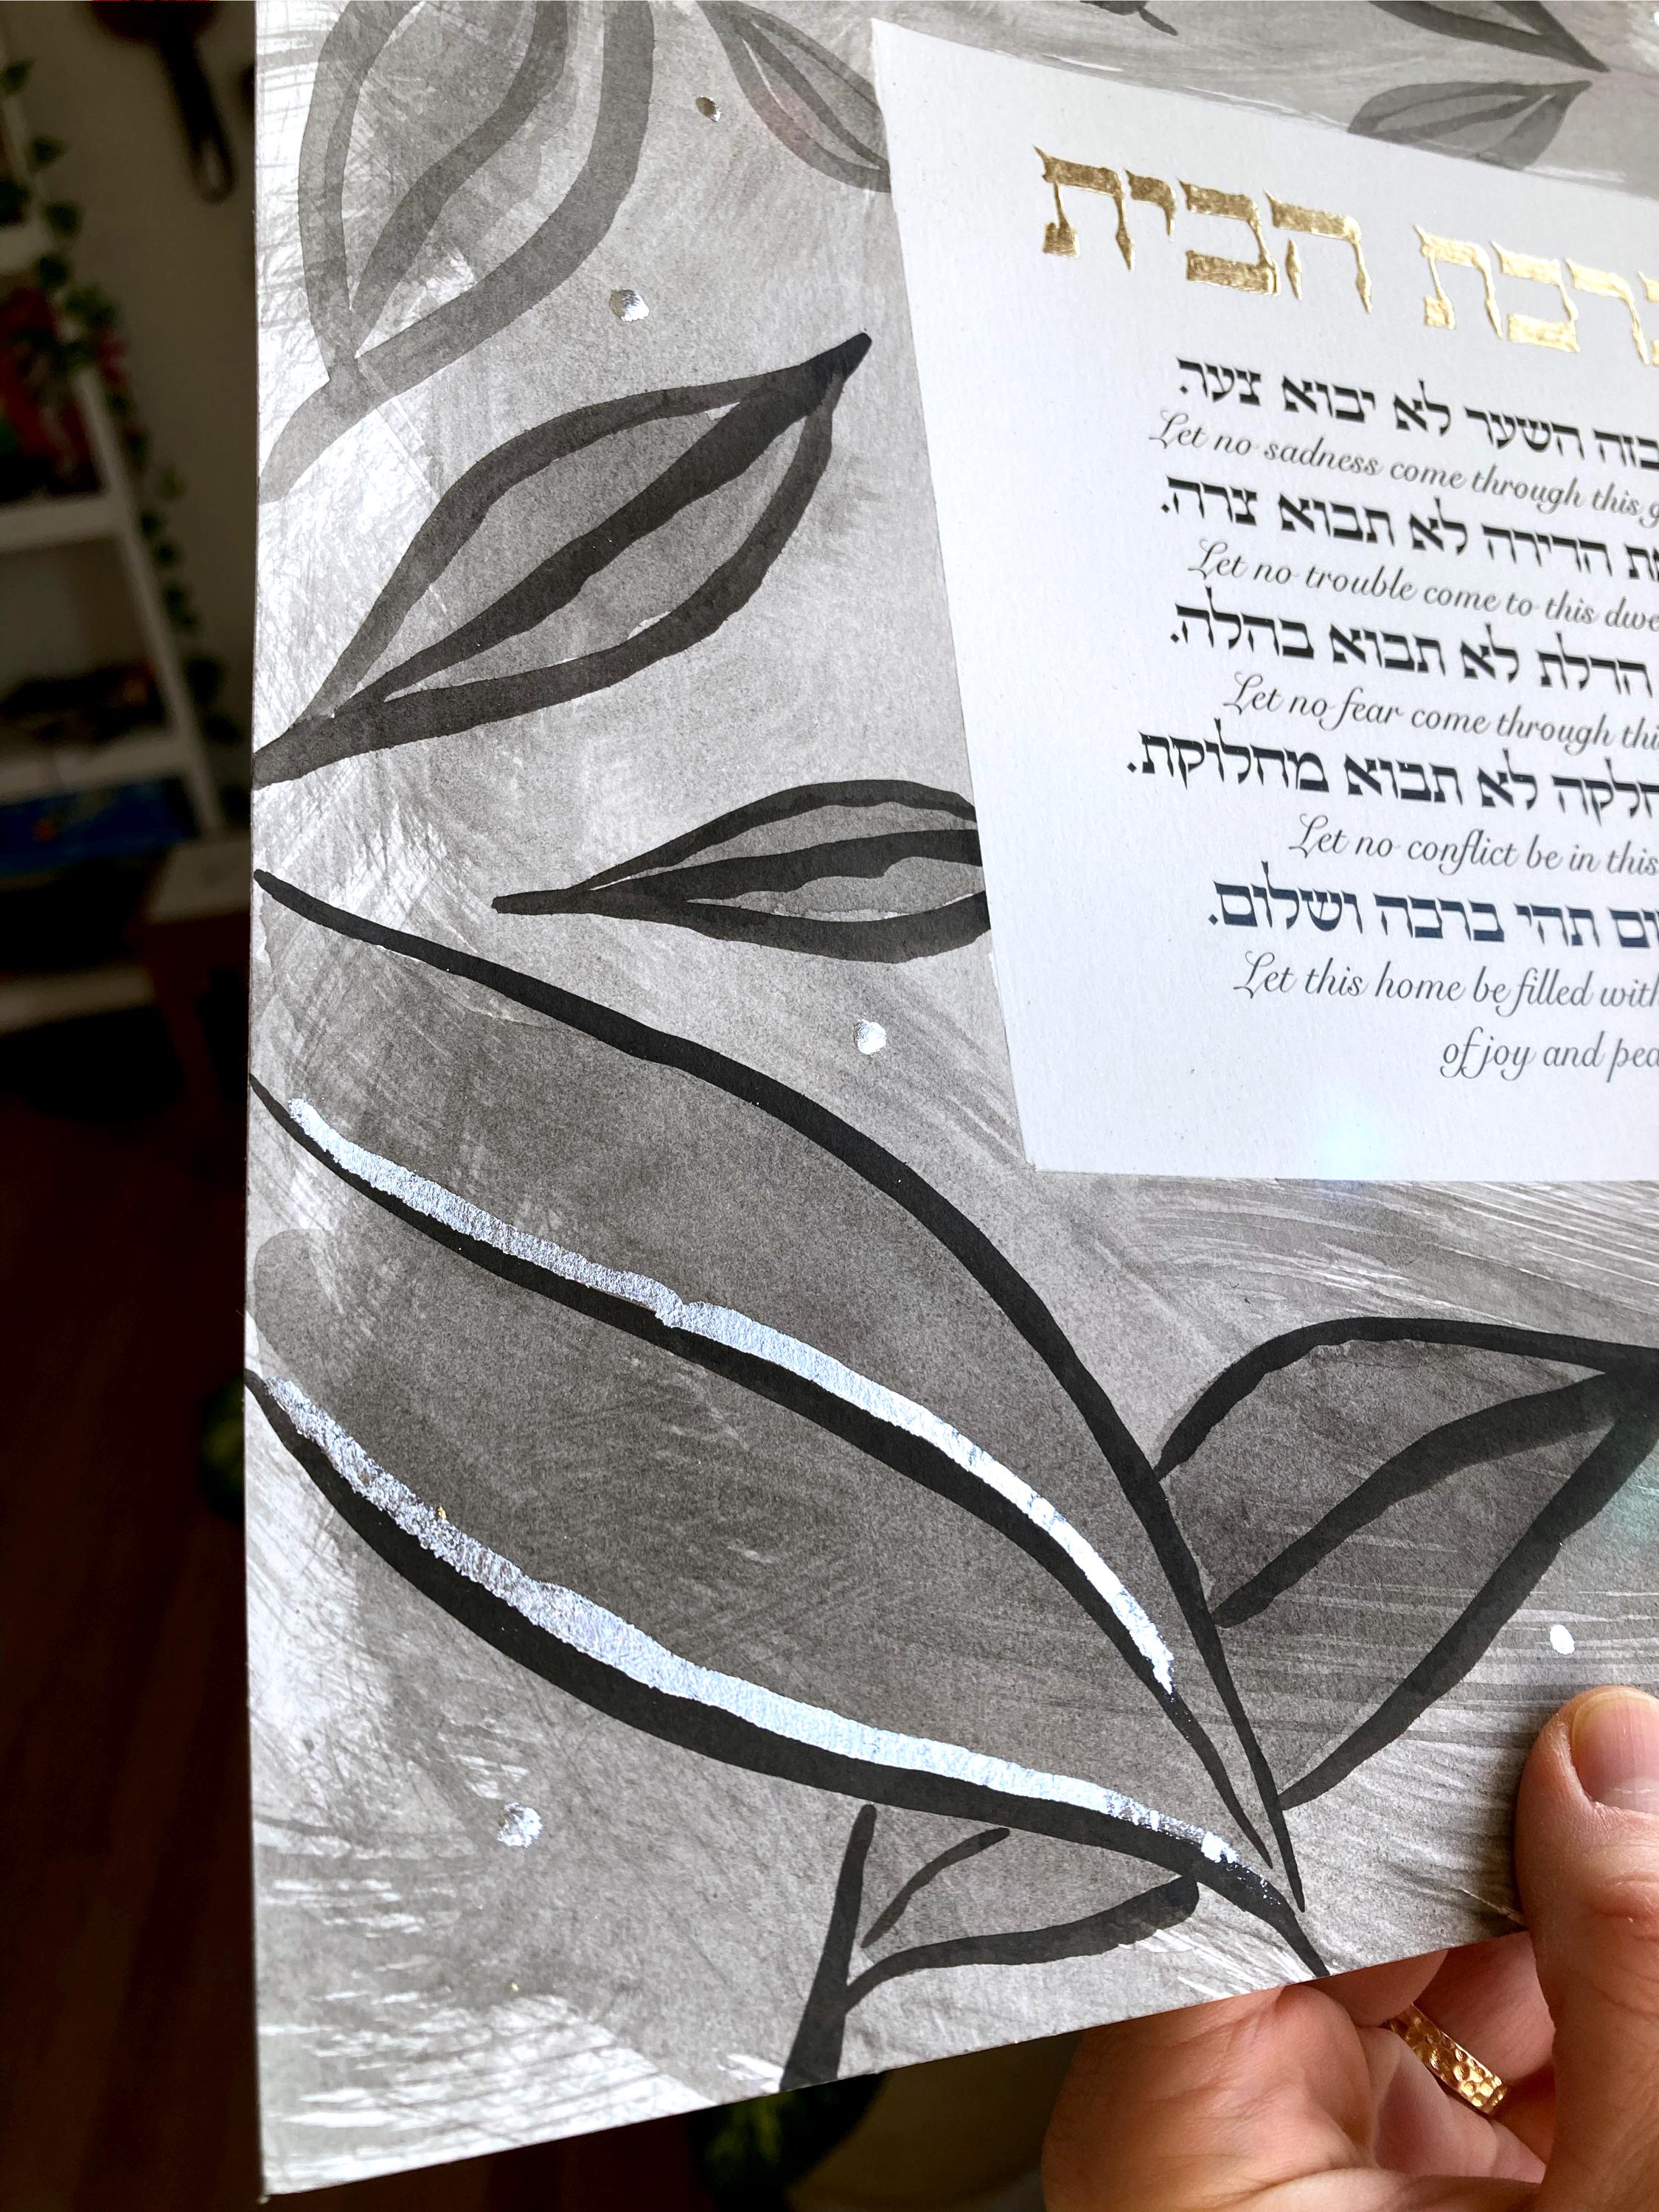 הבית
השער לא יבוא צער.
Let no sadness come through this
הדירה לא תבוא צרה.
Let no trouble come to this
הדלת לא תבוא בהלה.
Let no fear come through
לא תבוא מחלוקת.
Let no conflict be in this
תהי ברכה ושלום.
Let this home be filled with
of joy and